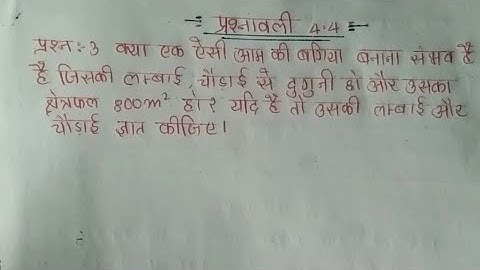 प्रश्नावली 4.4
प्रश्न:-3 क्या एक ऐसी आम की बगिया बनाना संभव है
है जिसकी लम्बाई, चौड़ाई से दुगुनी हो और उसका
क्षेत्रफल 800m² हो? यदि है तो उसकी लम्बाई और
चौड़ाई ज्ञात कीजिए।